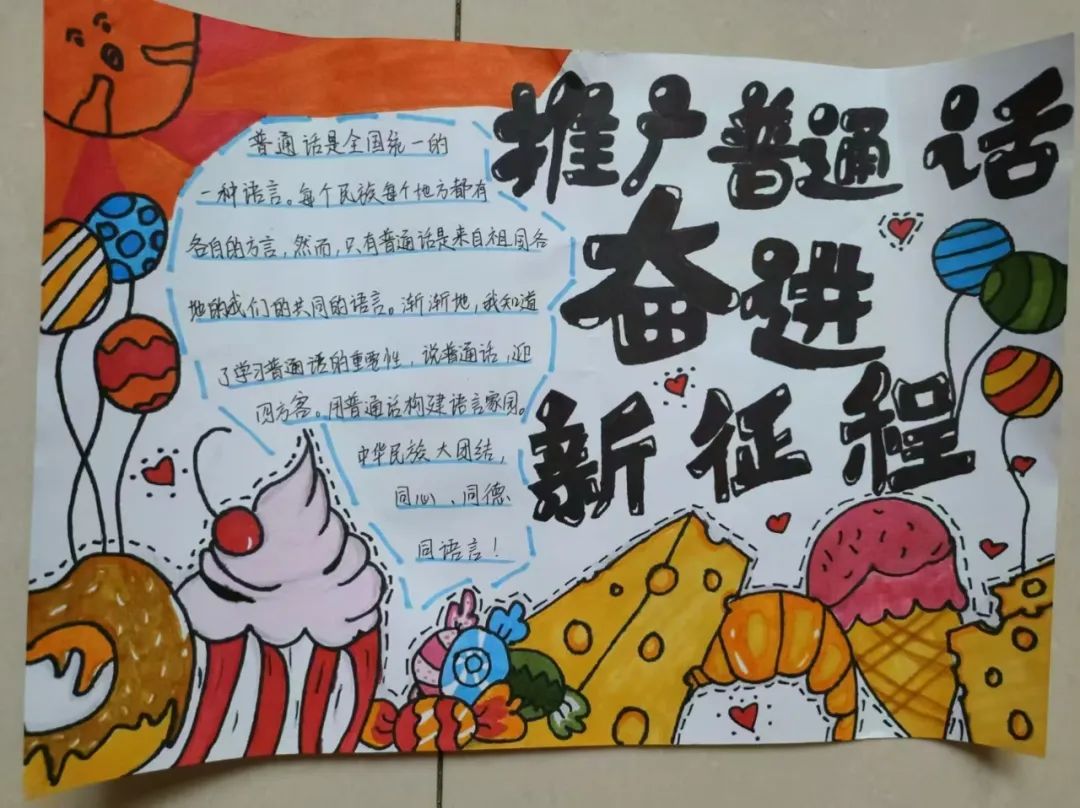 推广普通话
奋进
新征程
普通话是全国统一的
一种语言。每个民族每个地方都有
各自的方言，然而，只有普通话是来自祖国各
地的我们的共同的语言。渐渐地，我知道
了学习普通话的重要性，说普通话，迎
四方客。用普通话构建语言家园。
中华民族大团结，
同心、同德
同语言！